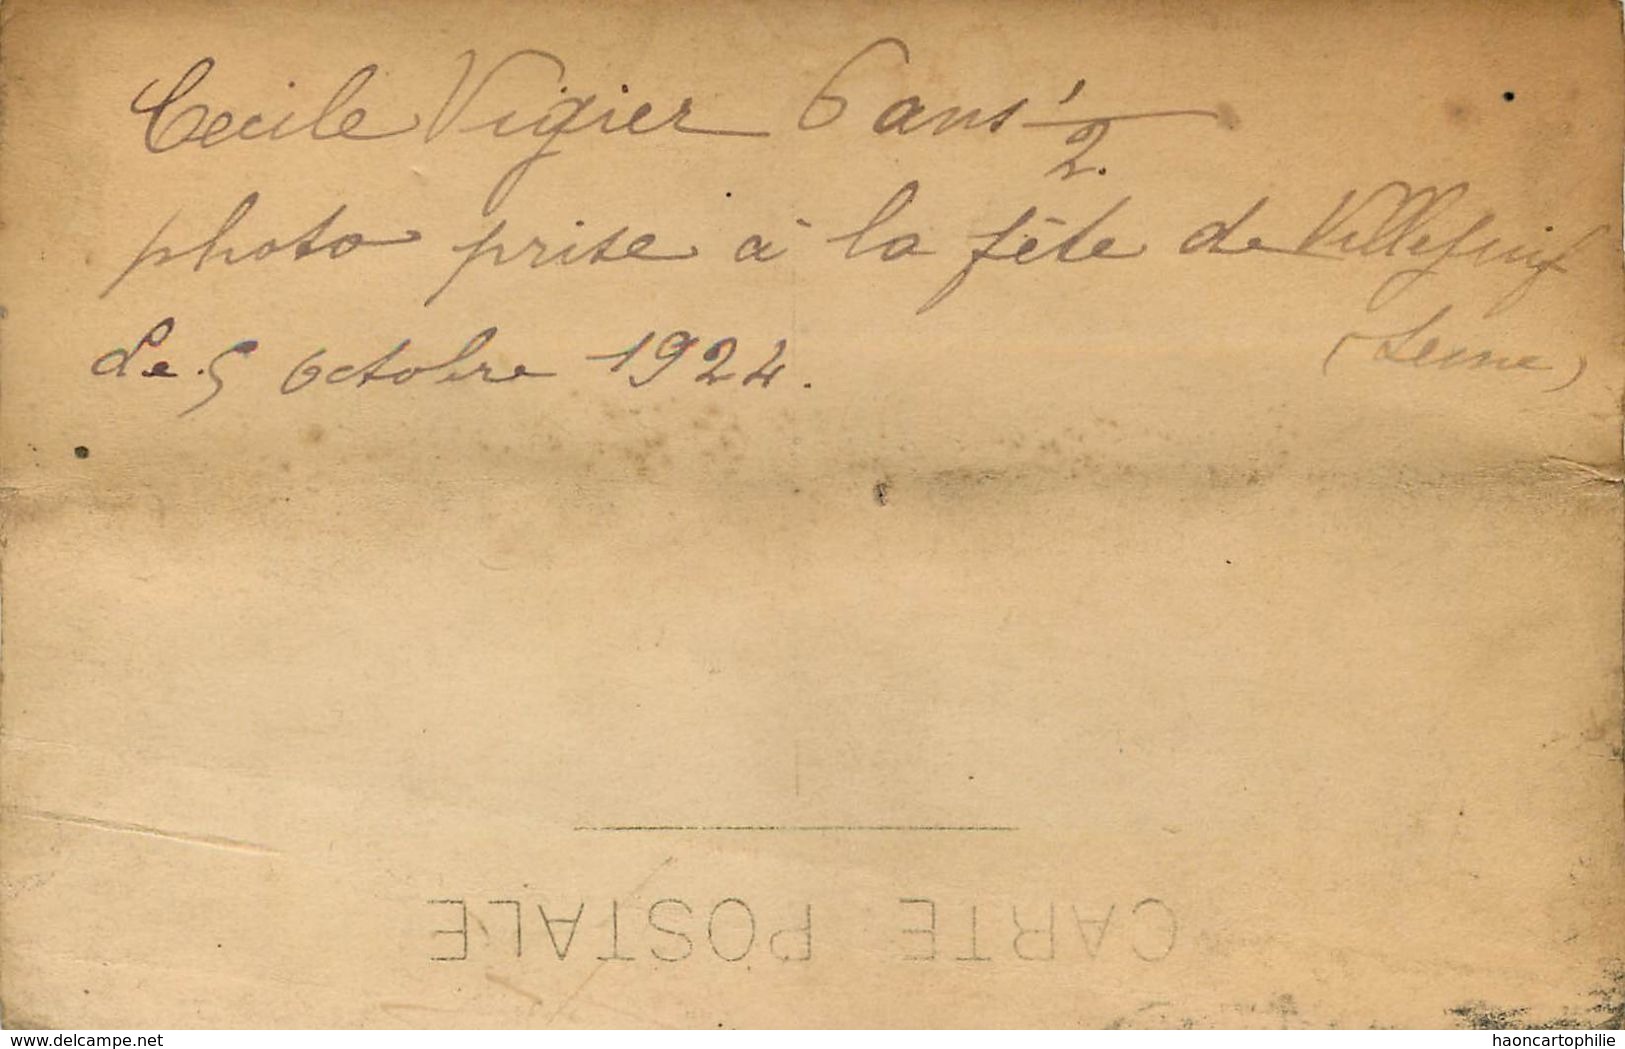 Cecile Vigier 6 ans 1/2.
photo prise à la fête de Villejuif
Le 5 octobre 1924.
(Seine)
CARTE POSTALE
www.delcampe.net
haoncartophilie